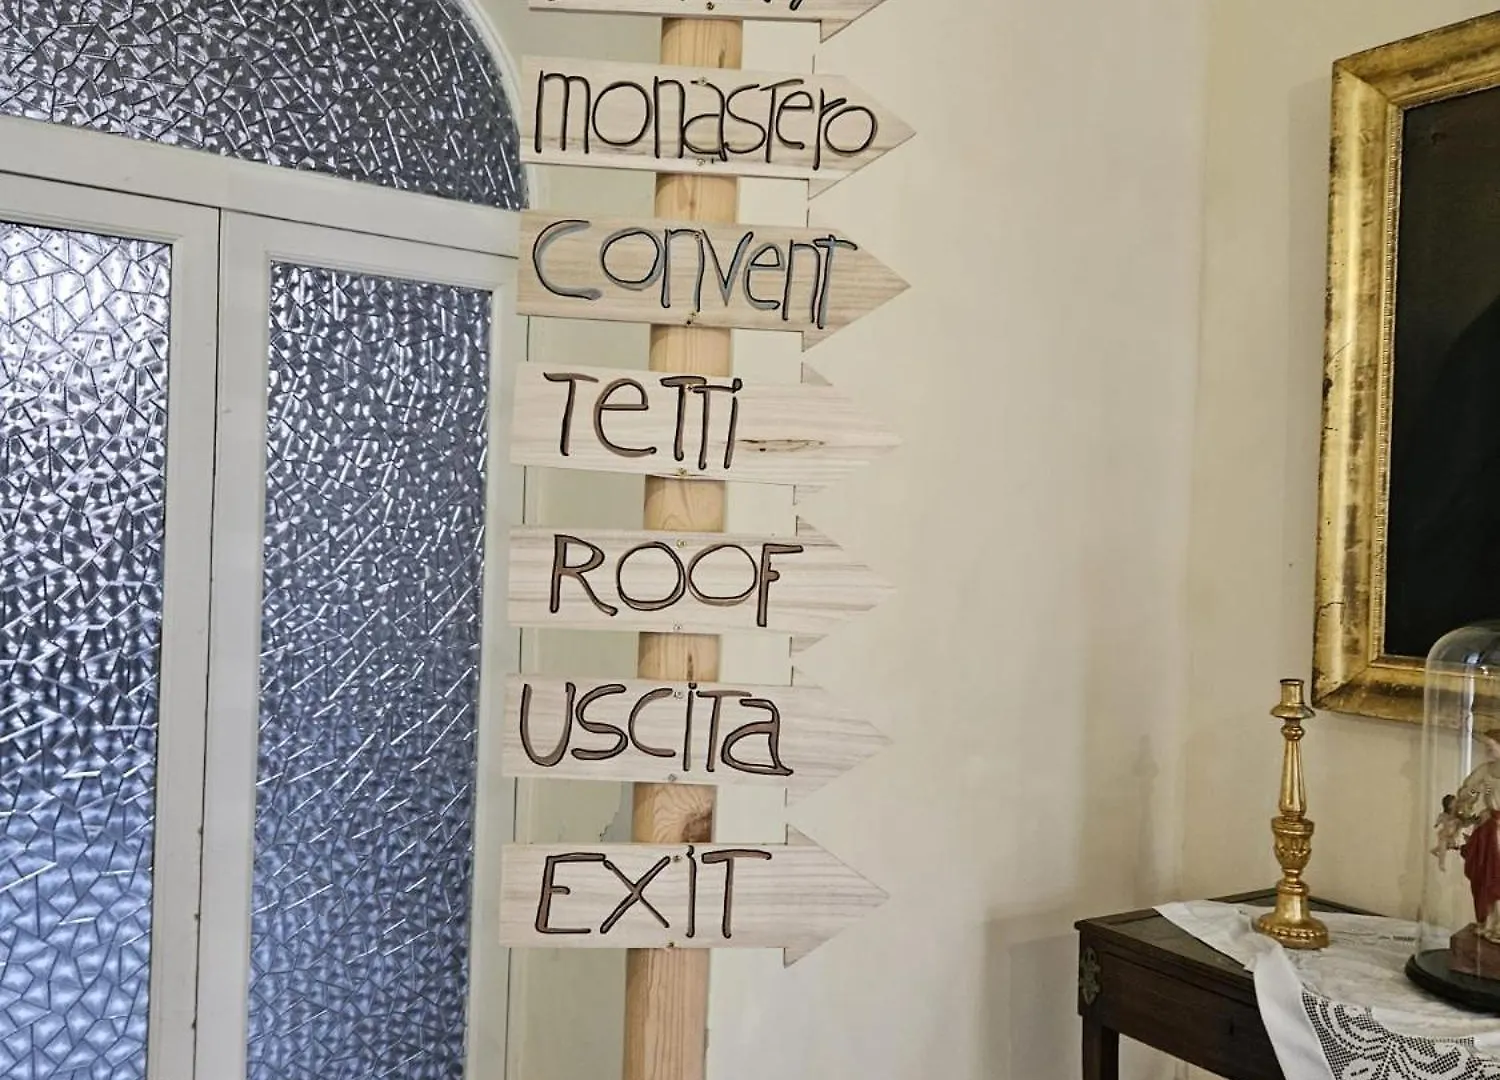 monastero
convent
Tetti
ROOF
Uscita
EXiT